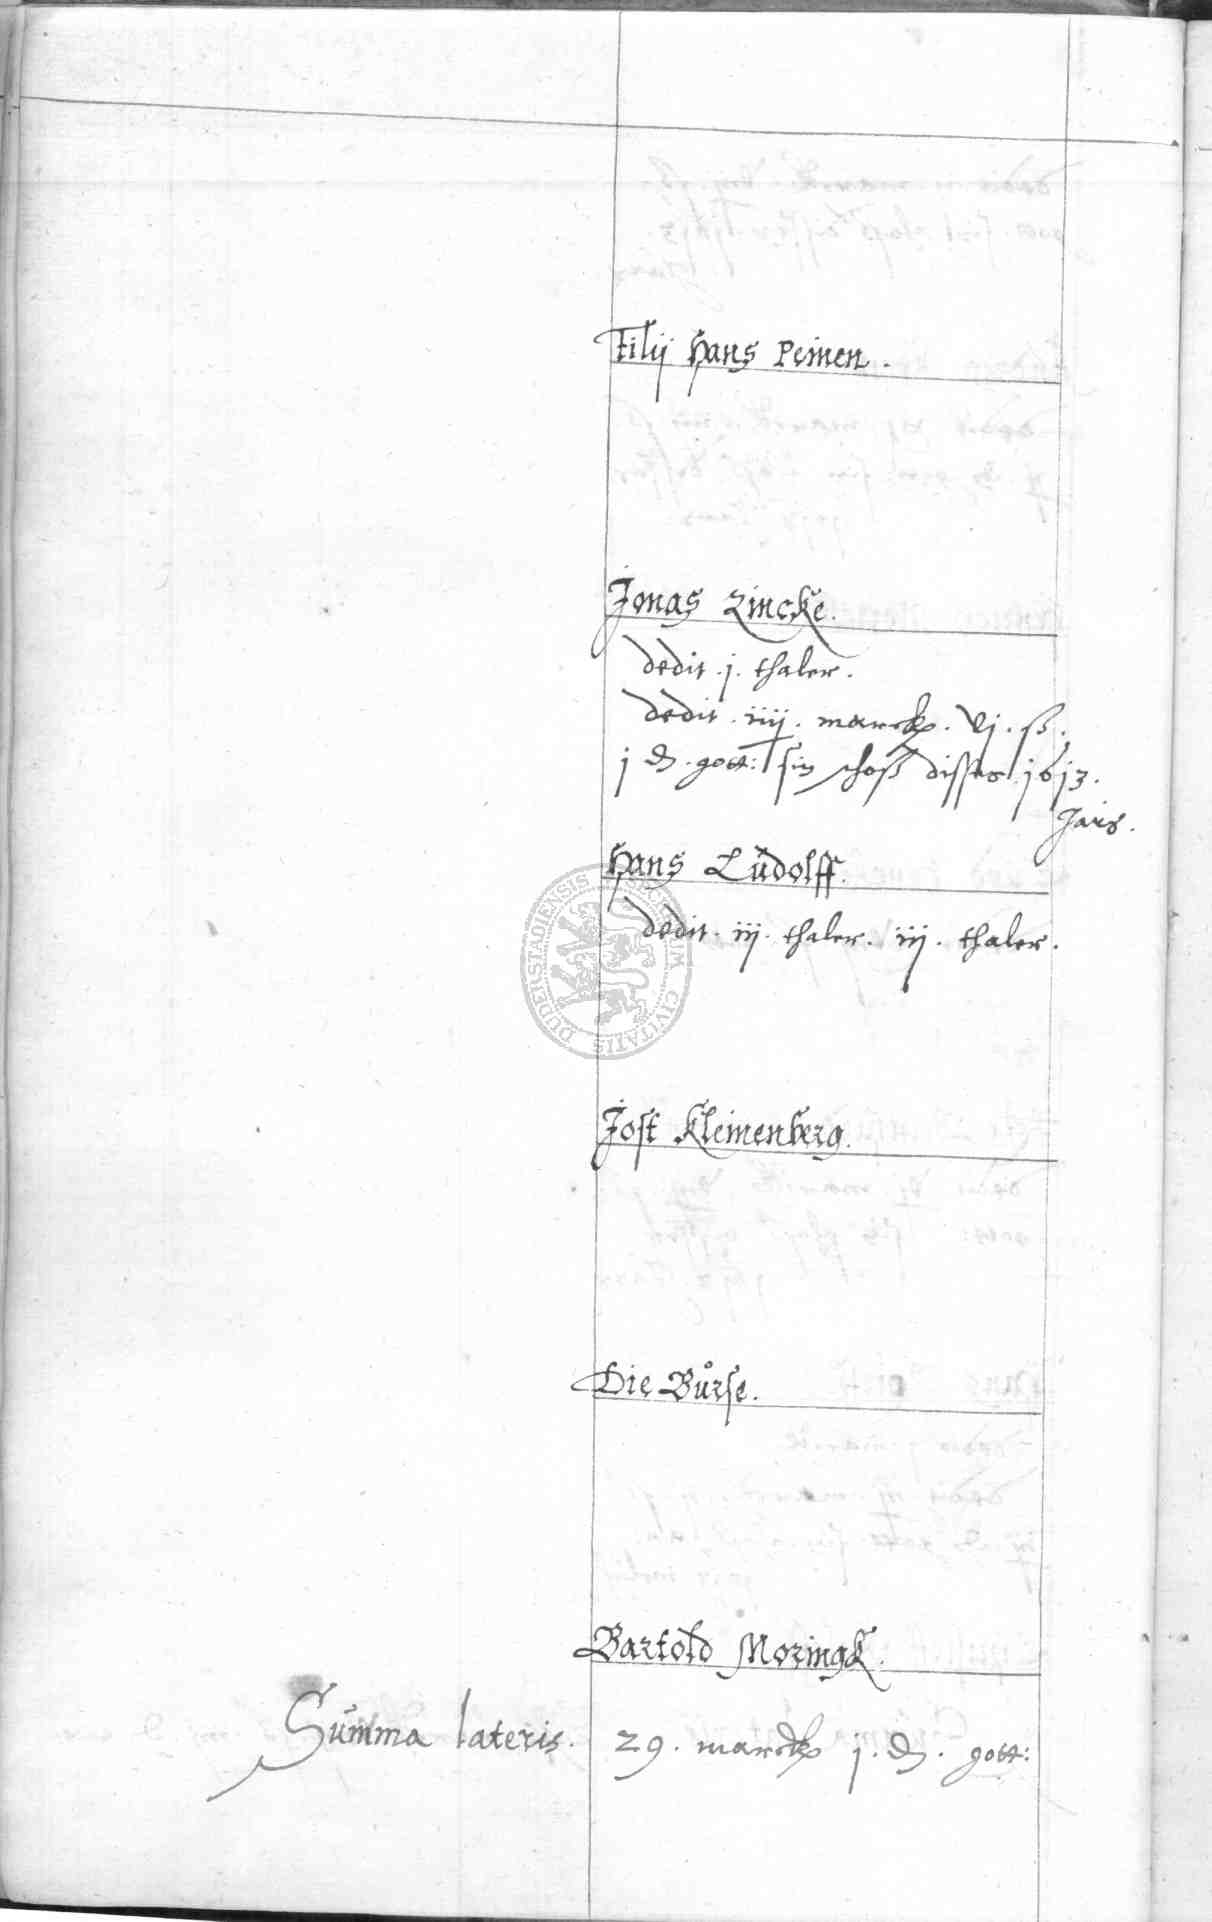 Filij Hans Peinen.
Jonas Zincke.
dedit . j . thaler .
dedit . iiij . marck . vj . ß .
j ₰ . gott: sin schoß disses 1613 .
Jars .
Hans Lůdolff.
dedit . iij . thaler . iij . thaler .
Jost Kleinenberg.
Die Bůrse.
Bartold Moringk.
Sům̄a lateris . 29 . marck j . ₰ . gott:
SIGILLUM CIVITATIS DUDERSTADIENSIS